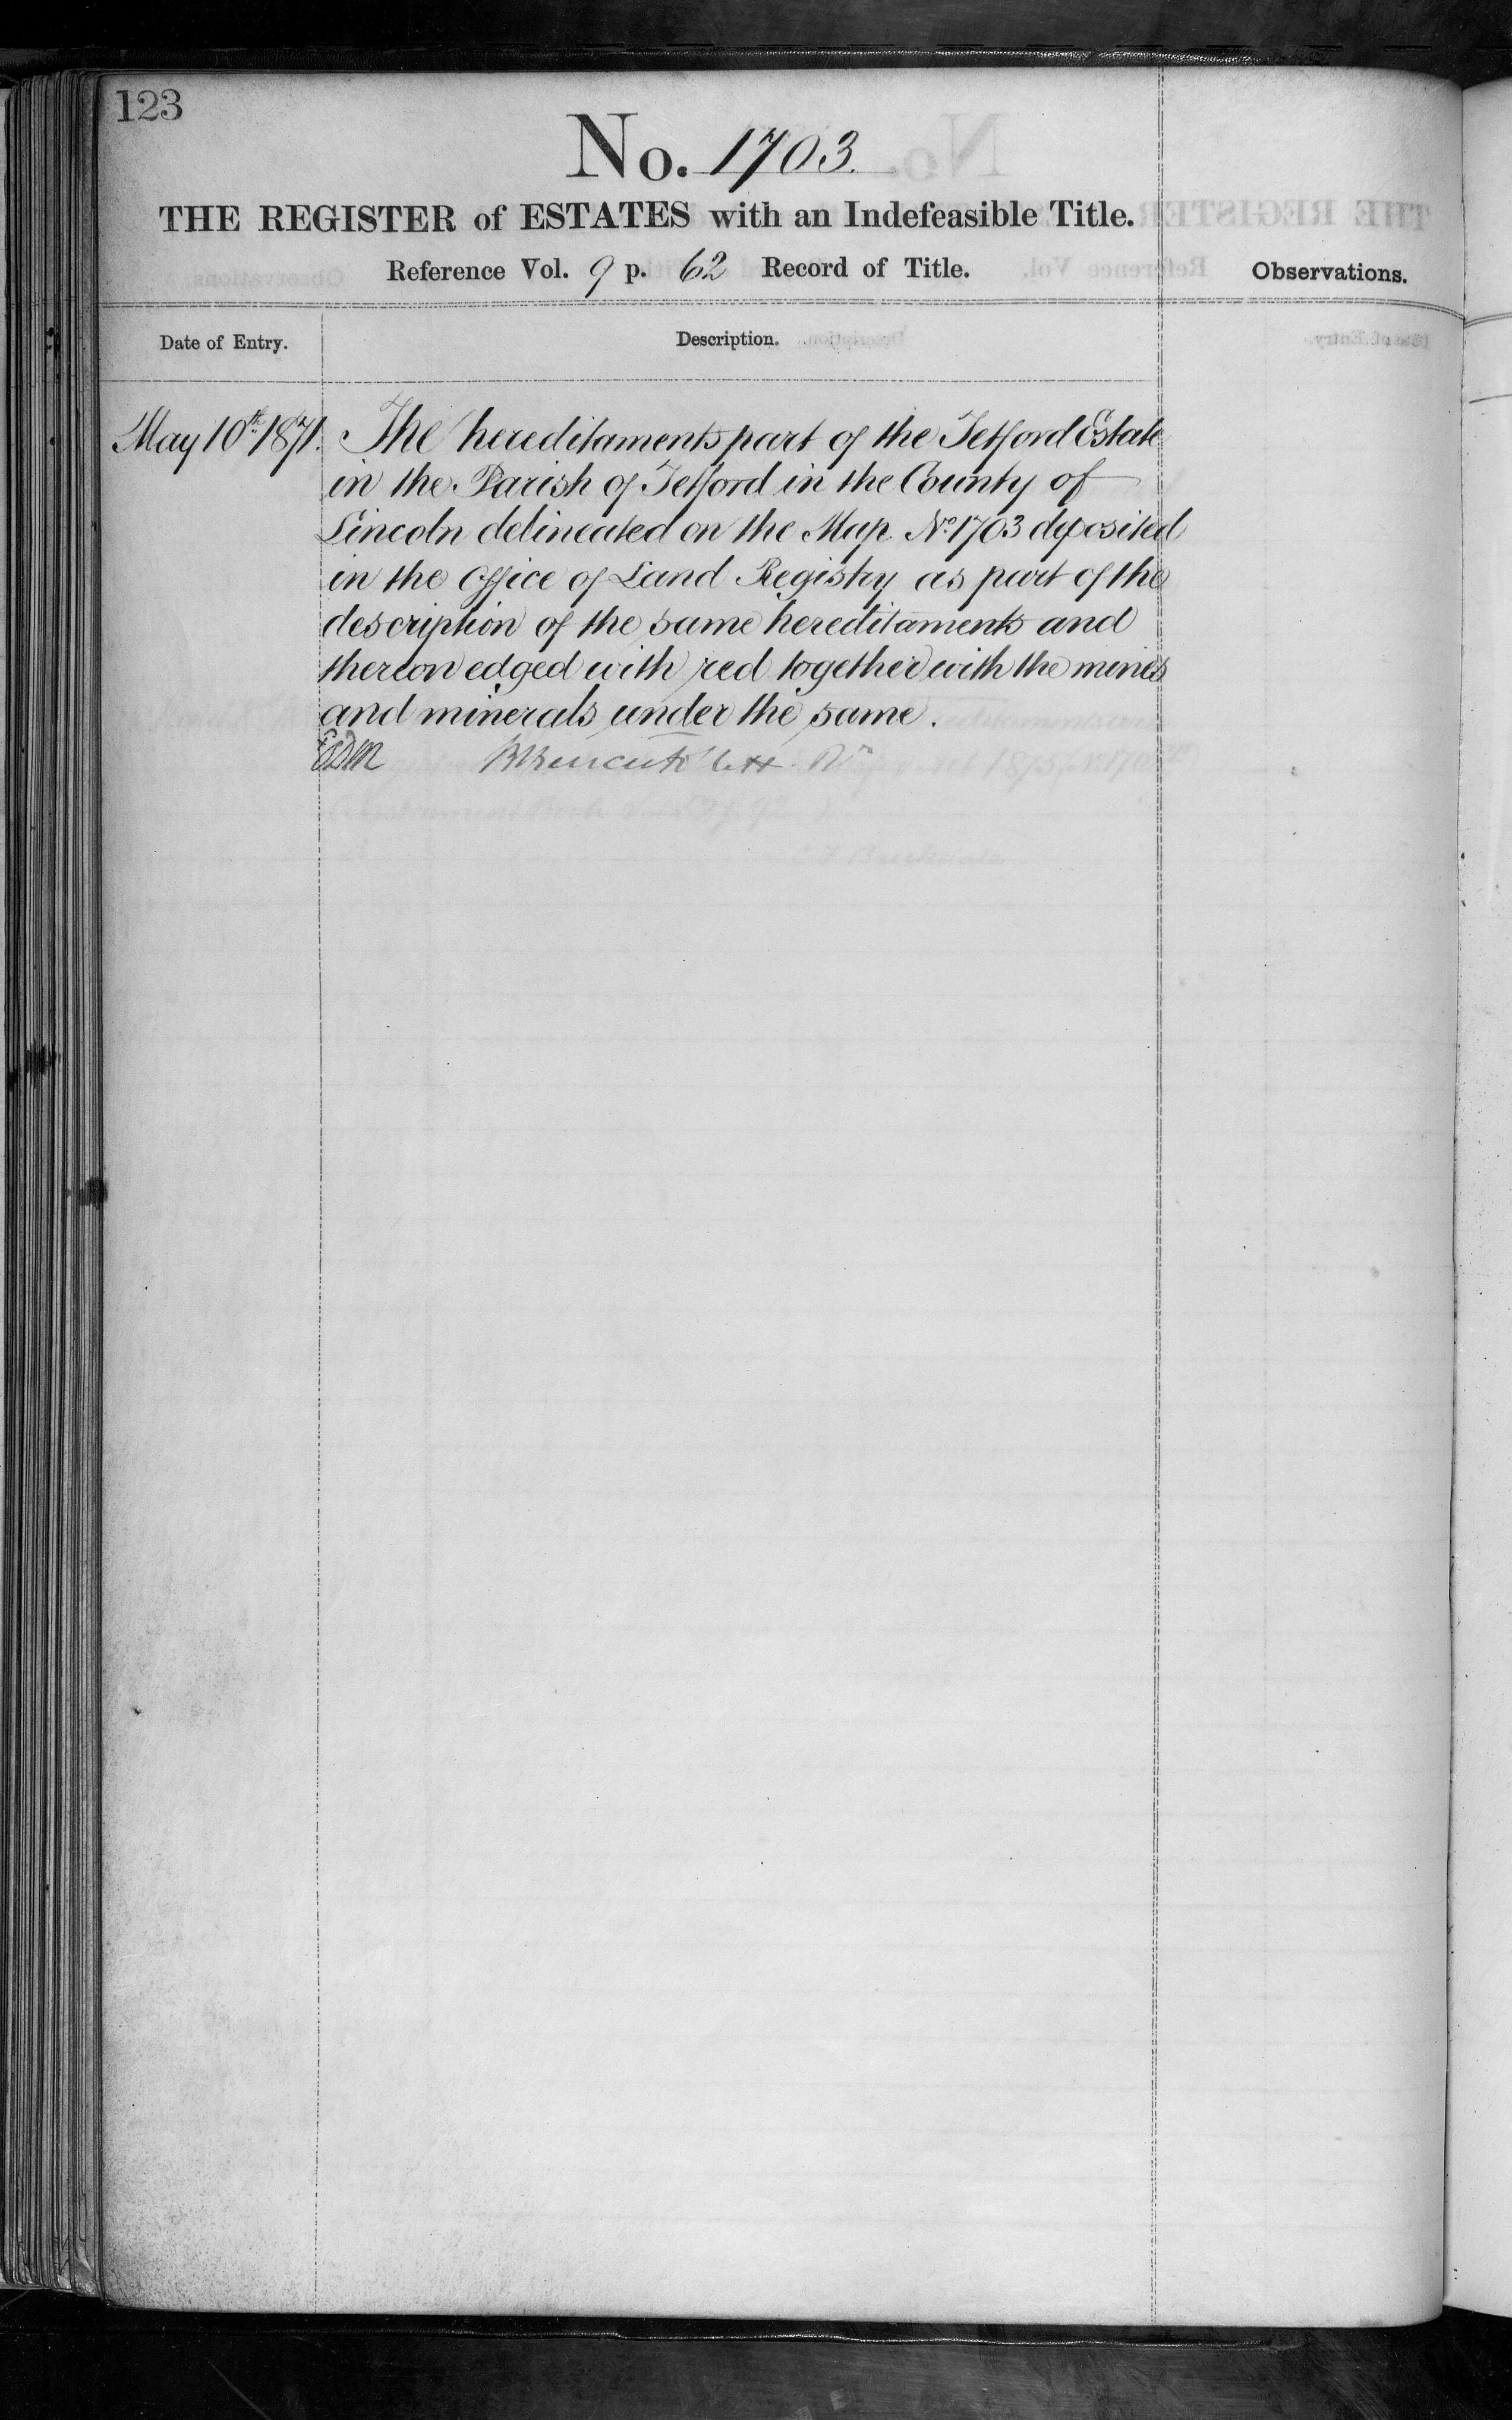 123
No. 1703.
THE REGISTER of ESTATES with an Indefeasible Title.
Reference Vol. 9 p. 62 Record of Title.
Observations.
Date of Entry.
Description.
May 10th 1871. The hereditaments part of the Tetford Estate
in the Parish of Tetford in the County of
Lincoln delineated on the Map No. 1703 deposited
in the Office of Land Registry as part of the
description of the same hereditaments and
thereon edged with red together with the mines
and minerals under the same.